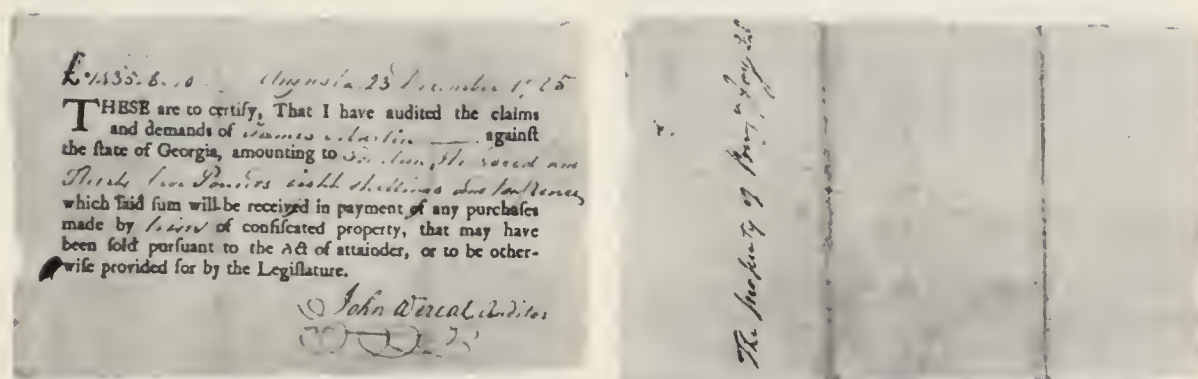 £ 1435.6.10 Augusta 23 December
THESE are to certify, That I have audited the claims
and demands of James Martin against
the ſtate of Georgia, amounting to
Pounds eight ſhillings and
which ſaid ſum will be received in payment of any purchaſes
made by him of confiſcated property, that may have
been ſold purſuant to the Act of attainder, or to be other-
wiſe provided for by the Legiſlature.
John Wereat Auditor
The property of